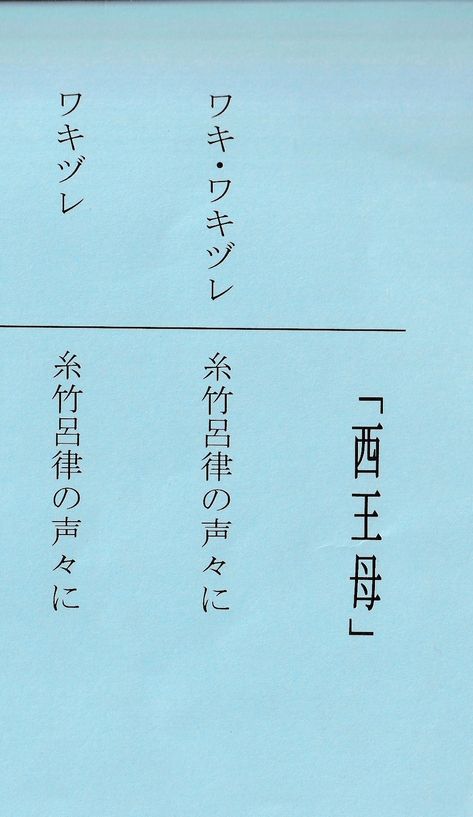 「西王母」
ワキ・ワキヅレ
糸竹呂律の声々に
ワキヅレ
糸竹呂律の声々に